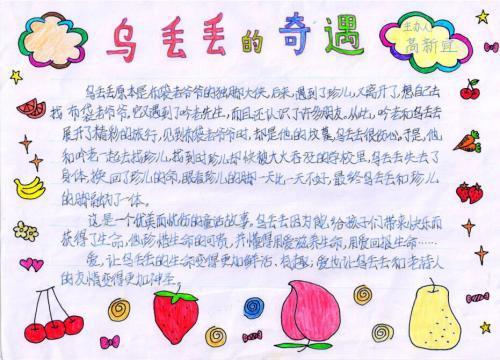 乌丢丢的奇遇
主办人
高新宜
乌丢丢原本是布袋老爷爷的独脚大侠,后来,遇到了珍儿,又离开了,想自己去
找布袋老爷爷,它又遇到了吟老先生,而且还认识了许多朋友。从此,吟老和乌丢丢
展开了精彩的旅行,见到布袋老爷爷时,却是他的坟墓,乌丢丢很伤心。于是,他
和吟老一起去找珍儿,找到时珍儿却
学校里,乌丢丢失去了
身体,换回了珍儿的命,眼看珍儿的脚一天比一天不好,最终乌丢丢和珍儿
的脚融为了一体。
这是一个优美而忧伤的童话故事。乌丢丢因为能给孩子们带来快乐而
获得了生命,他珍惜生命的可贵,并懂得用爱滋养生命,用爱回报生命……
爱,让乌丢丢的生命变得更加鲜活、有趣;爱也让乌丢丢和老诗人
的友情变得更加神圣。